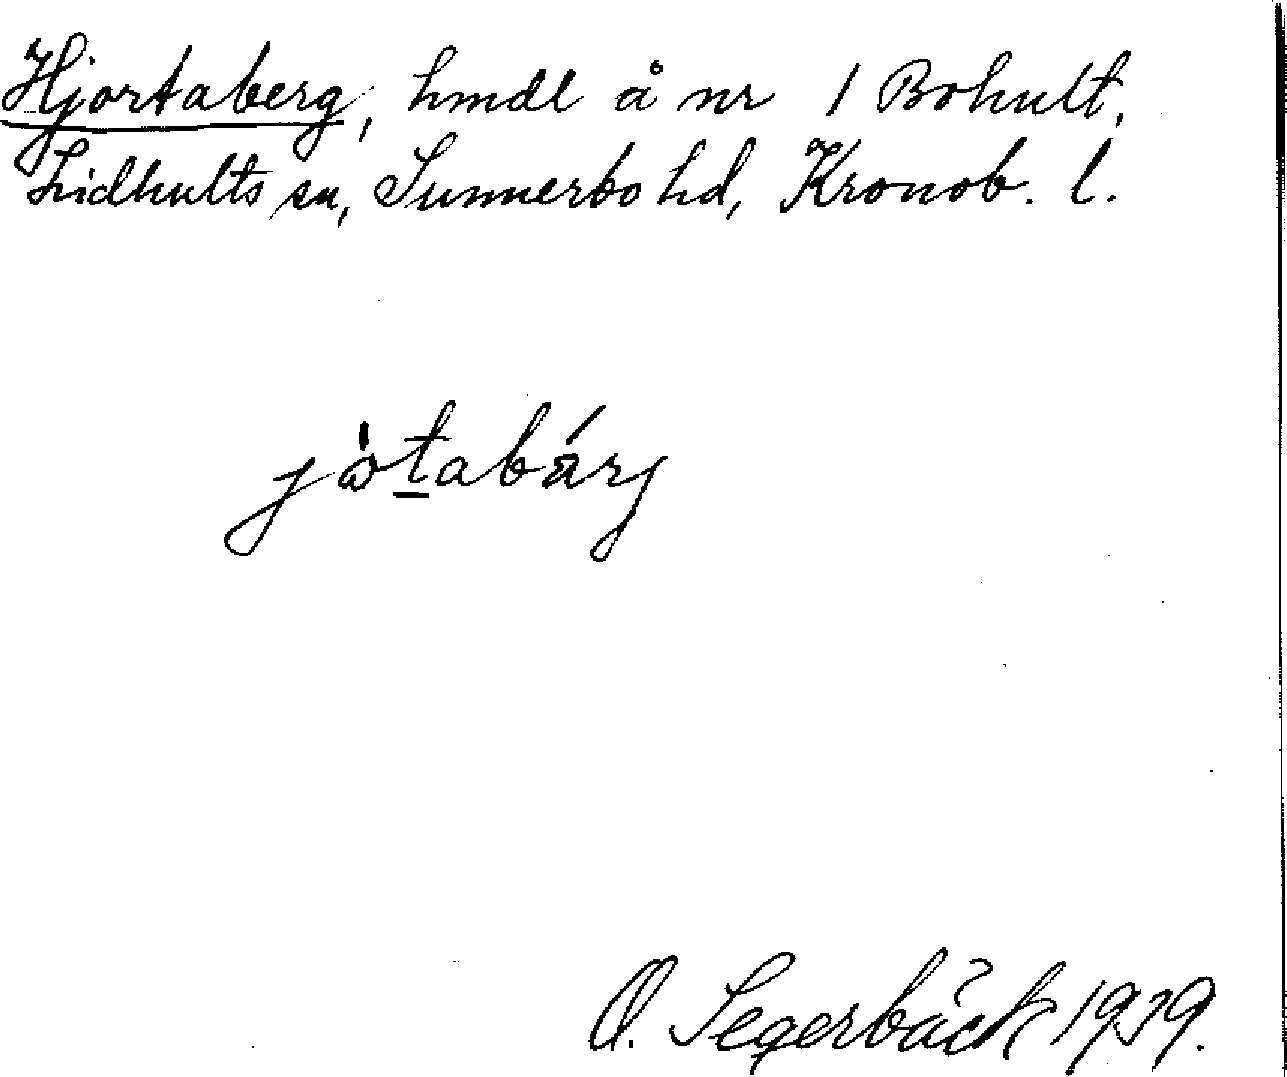 Hjortaberg, hmdl å nr 1 Bohult,
Lidhults sn, Sunnerbo hd, Kronob. l.
jòtabárj
O. Segerbäck 1939.